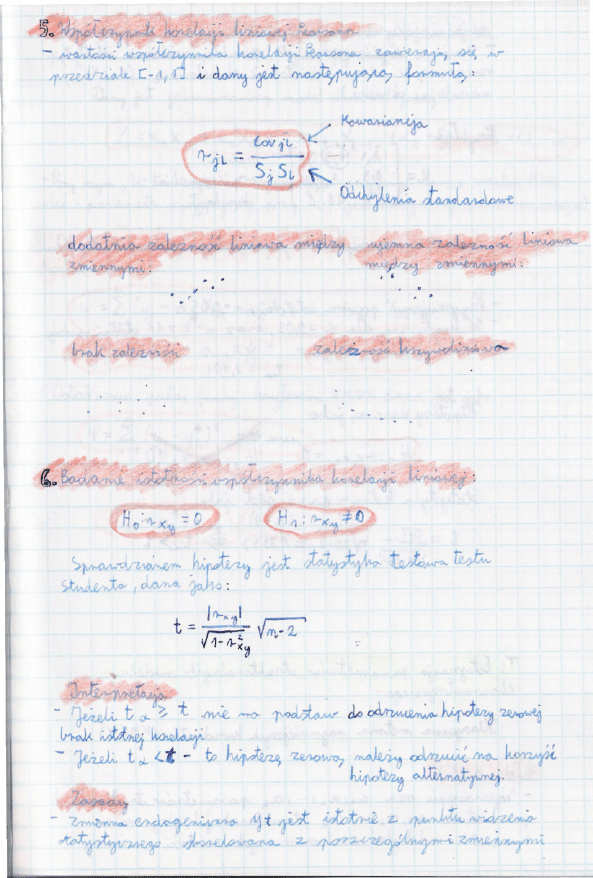 5. Współczynnik korelacji liniowej Pearsona
- wartości współczynnika korelacji Pearsona zawierają się w
przedziale [-1,1] i dany jest następującą formułą:
Kowariancja
r_jl = cov_jl / S_j S_l
Odchylenia standardowe
dodatnia zależność liniowa między zmiennymi:
ujemna zależność liniowa między zmiennymi:
brak zależności
zależność krzywoliniowa
6. Badanie istotności współczynnika korelacji liniowej:
H₀: r_xy = 0
H₁: r_xy ≠ 0
Sprawdzianem hipotezy jest statystyka testowa testu
Studenta, dana jako:
t = |r_xy| / √(1-r²_xy) √(n-2)
Interpretacja
- Jeżeli t_α ≥ t nie ma podstaw do odrzucenia hipotezy zerowej
brak istotnej korelacji
- Jeżeli t_α < t - to hipotezę zerową należy odrzucić na korzyść
hipotezy alternatywnej.
Zasady
- zmienna endogeniczna yt jest istotnie z punktu widzenia
statystycznego skorelowana z poszczególnymi zmiennymi